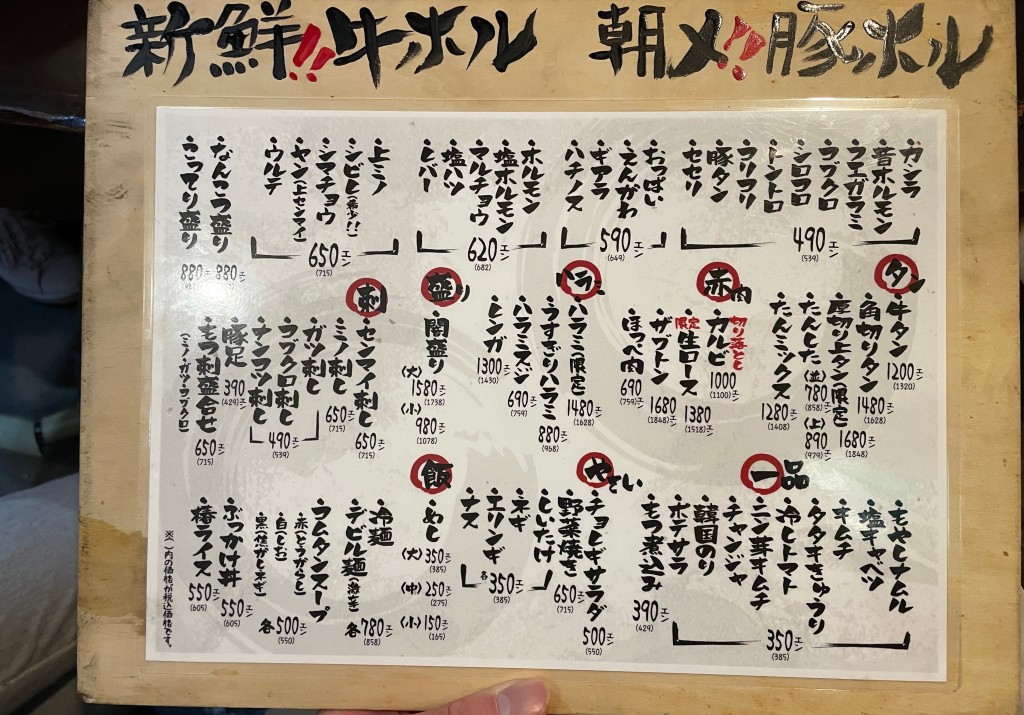 新鮮!!牛ホルモン
朝〆!!豚ホルモン
カシラ
昔ホルモン
ウエガラミ
コブクロ
シロコロ
トントロ
コリコリ
豚タン
セセリ
490エン
(539)
おっぱい
えんがわ
ギアラ
ハチノス
590エン
(649)
ホルモン
塩ホルモン
マルチョウ
塩ハツ
レバー
620エン
(682)
上ミノ
シビレ(希少!!)
シマチョウ
ヤン(上センマイ)
ウルテ
650エン
(715)
なんこつ盛り
880エン
こってり盛り
880エン
タン
牛タン
1200エン
(1320)
角切りタン
1480エン
(1628)
厚切り上タン(限定)
1680エン
(1848)
たんした
(並)
780エン
(858)
(上)
890エン
(979)
たんミックス
1280エン
(1408)
赤肉
切り落とし
カルビ
1000エン
(1100)
限定
生ロース
1380エン
(1518)
ザブトン
1680エン
(1848)
ほっぺ肉
690エン
(759)
ハラミ
ハラミ(限定)
1480エン
(1628)
うすぎりハラミ
880エン
(968)
ハラミスジ
690エン
(759)
レンガ
1300エン
(1430)
盛り
闇盛り
(大)
1580エン
(1738)
(小)
980エン
(1078)
刺
センマイ刺し
650エン
(715)
ミノ刺し
650エン
(715)
ガツ刺し
コブクロ刺し
ナンコツ刺し
490エン
(539)
豚足
390エン
(429)
もつ刺盛合せ
(ミノ・ガツ・コブクロ)
650エン
(715)
一品
もやしナムル
塩キャベツ
キムチ
タタキきゅうり
冷しトマト
ニンニク芽キムチ
チャンジャ
韓国のり
ポテサラ
350エン
(385)
もつ煮込み
390エン
(429)
やさい
チョレギサラダ
500エン
(550)
野菜焼き
650エン
(715)
しいたけ
ネギ
エリンギ
ナス
各350エン
(385)
飯
めし
(大)350エン
(385)
(中)250エン
(275)
(小)150エン
(165)
冷麺
デビル麺(激辛)
各780エン
(858)
コムタンスープ
赤(とうがらし)
白(しお)
黒(焦がしネギ)
各500エン
(550)
ぶっかけ丼
550エン
(605)
椿ライス
550エン
(605)
※( )内の価格が税込価格です。